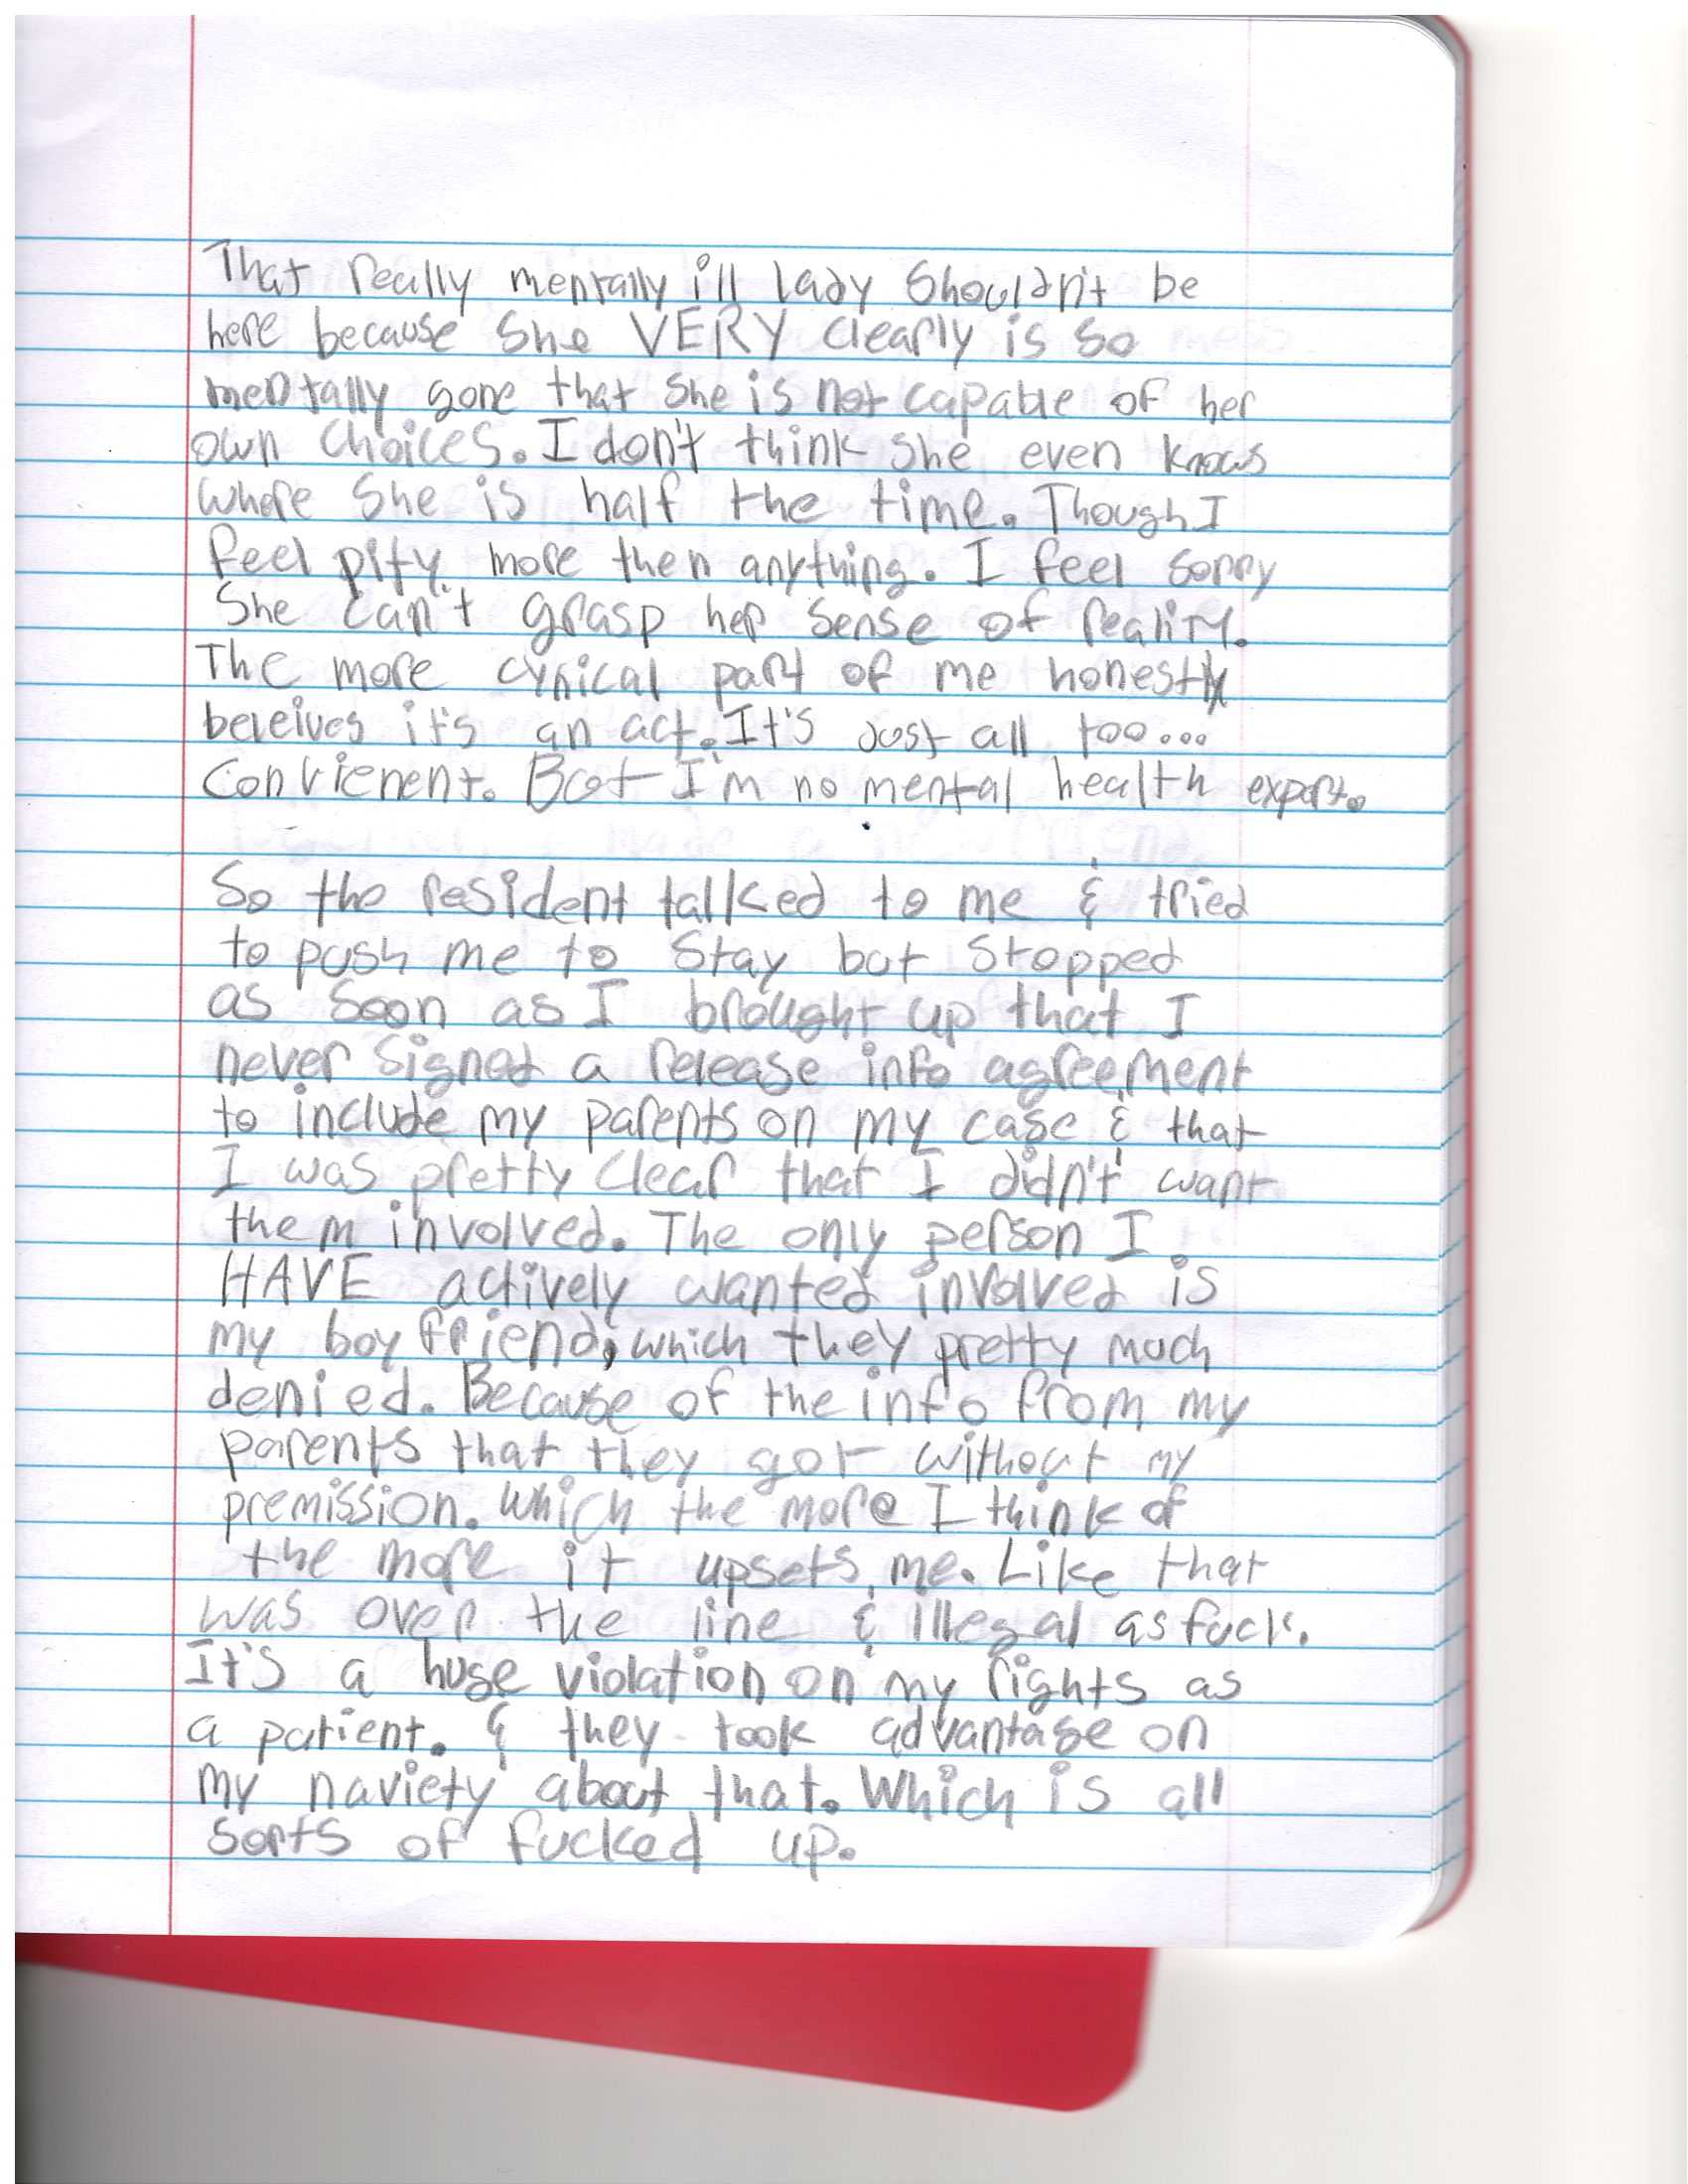 That really mentally ill lady shouldn't be
here because she VERY clearly is so
mentally gone that she is not capable of her
own choices. I don't think she even knows
where she is half the time. Though I
feel pity more then anything. I feel sorry
She can't grasp her sense of reality.
The more cynical part of me honestly
beleives it's an act. It's just all too...
Convienent. But I'm no mental health expert.
So the resident talked to me & tried
to push me to stay but stopped
as soon as I brought up that I
never signed a release info agreement
to include my parents on my case & that
I was pretty clear that I didn't want
them involved. The only person I
HAVE actively wanted involved is
my boyfriend, which they pretty much
denied. Because of the info from my
parents that they got without my
premission. Which the more I think of
the more it upsets me. Like that
was over the line & illegal as fuck.
It's a huge violation on my rights as
a patient. & they took advantage on
my naviety about that. Which is all
sorts of fucked up.